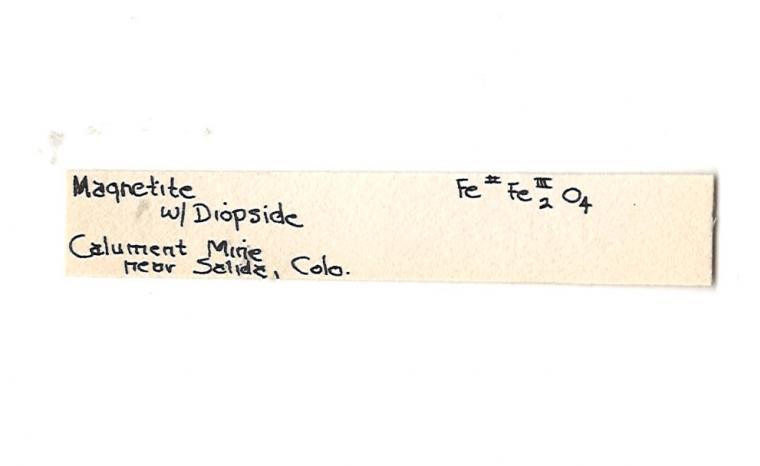 Magnetite
w/ Diopside
Calument Mine
near Salida, Colo.
Fe^II Fe^III_2 O_4